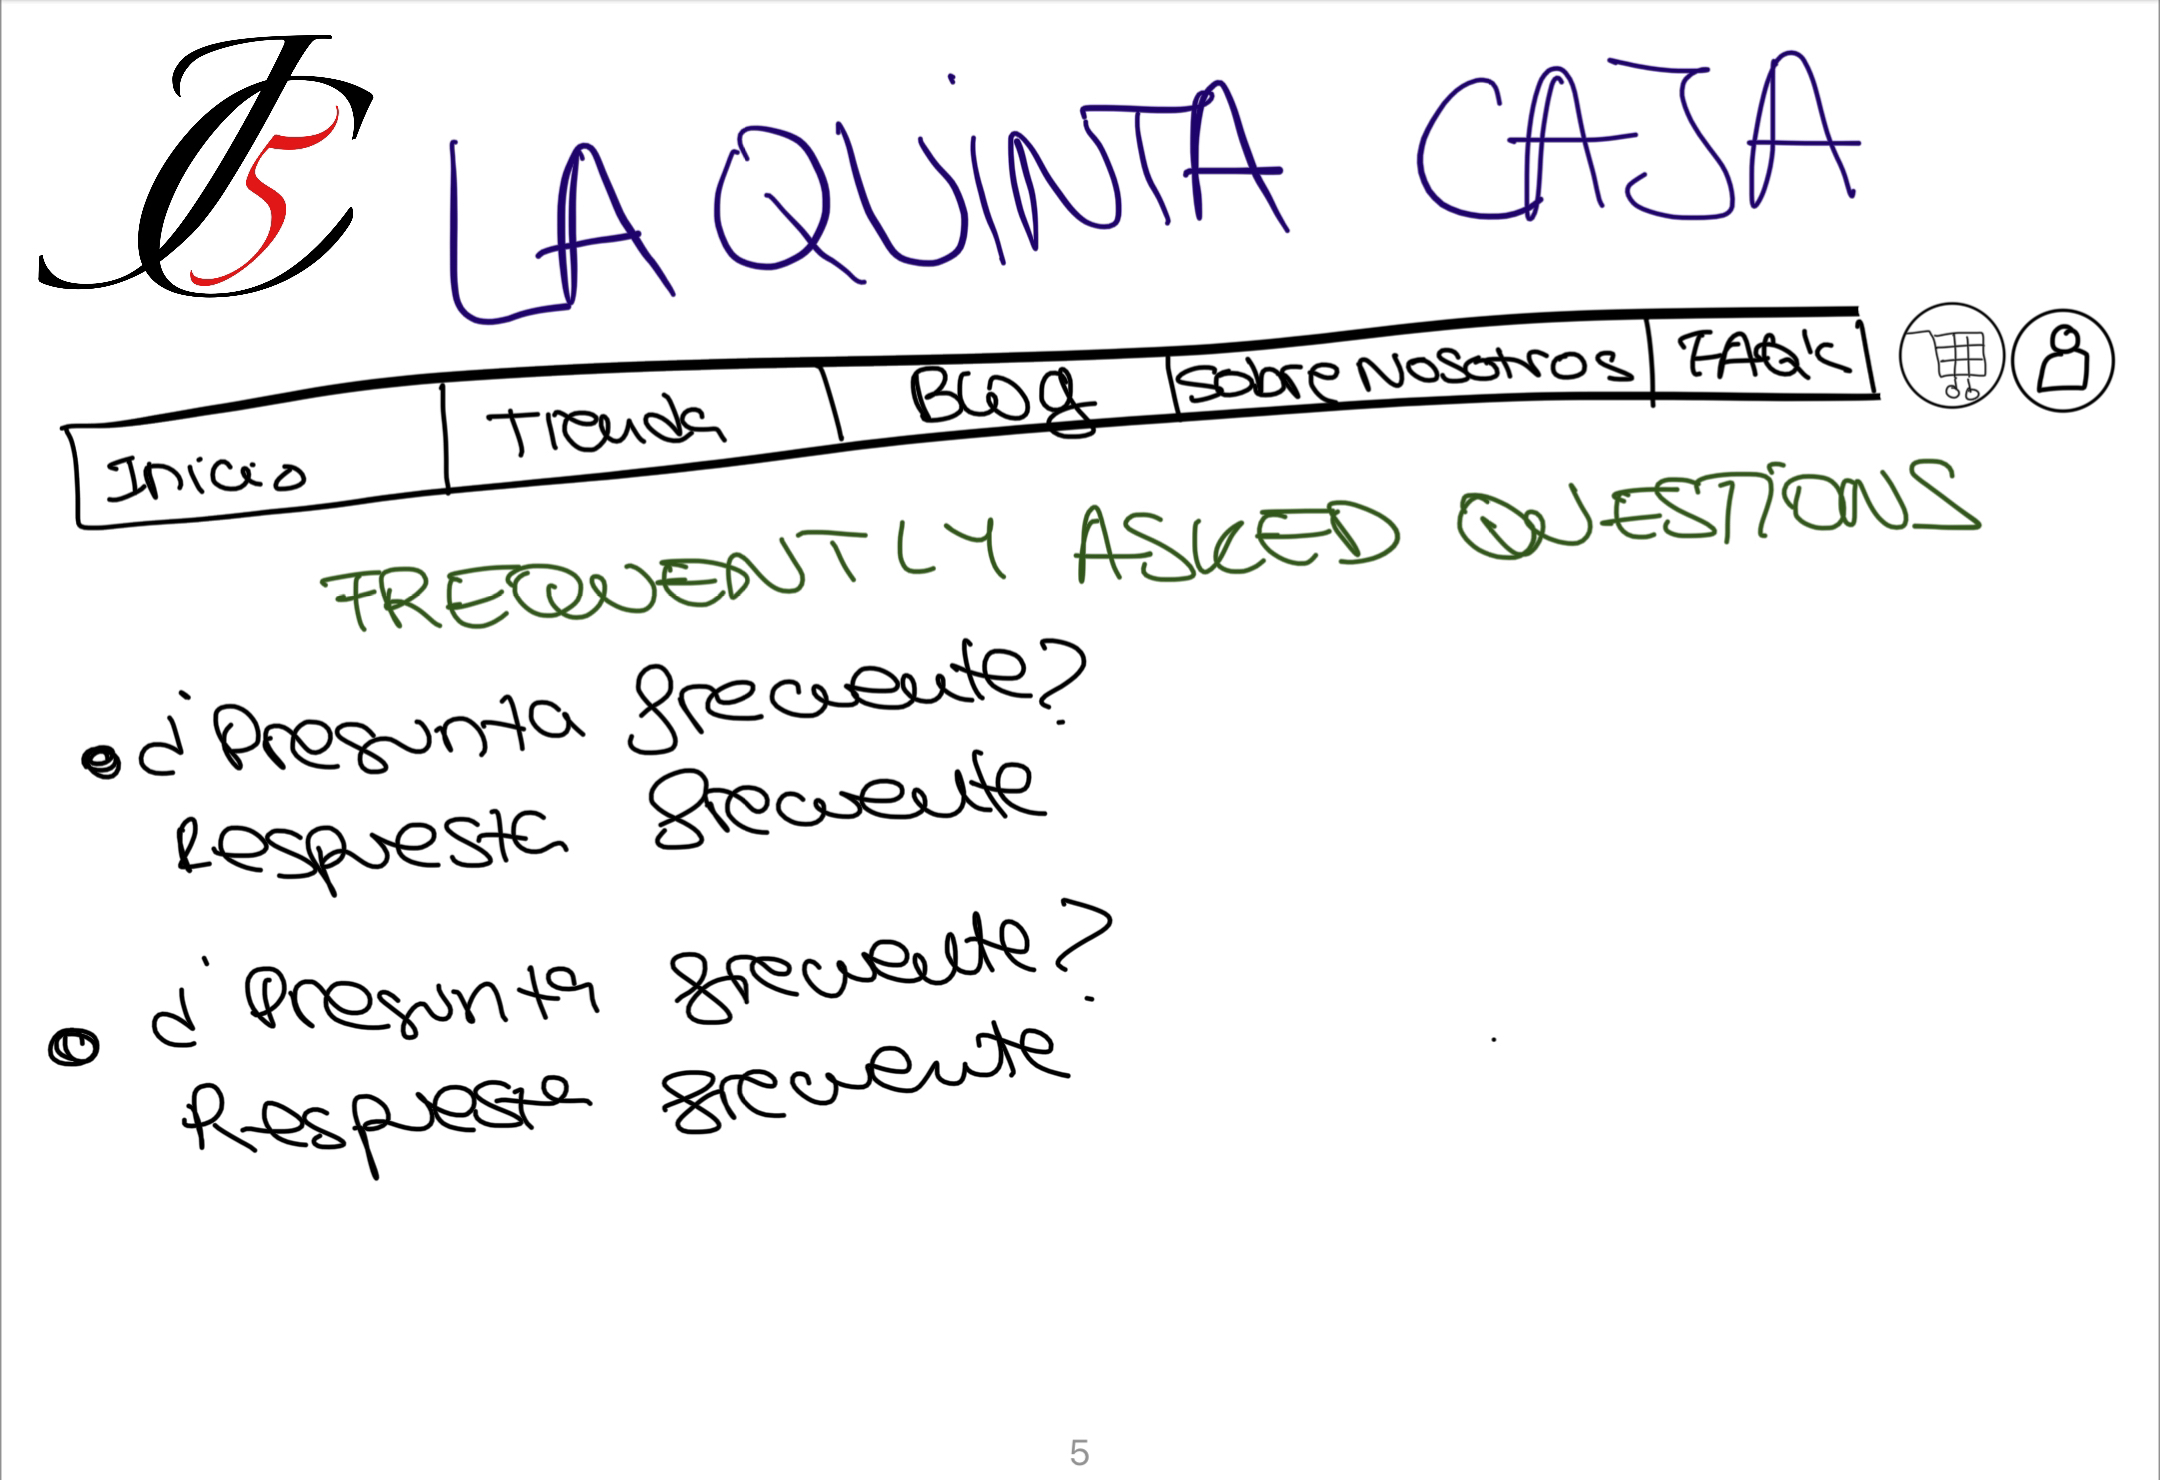 JC5
LA QUINTA CAJA
Inicio Tienda Blog Sobre Nosotros FAQ's
FREQUENTLY ASKED QUESTIONS
• ¿Pregunta frecuente?
Respuesta frecuente
• ¿Pregunta frecuente?
Respuesta frecuente
5